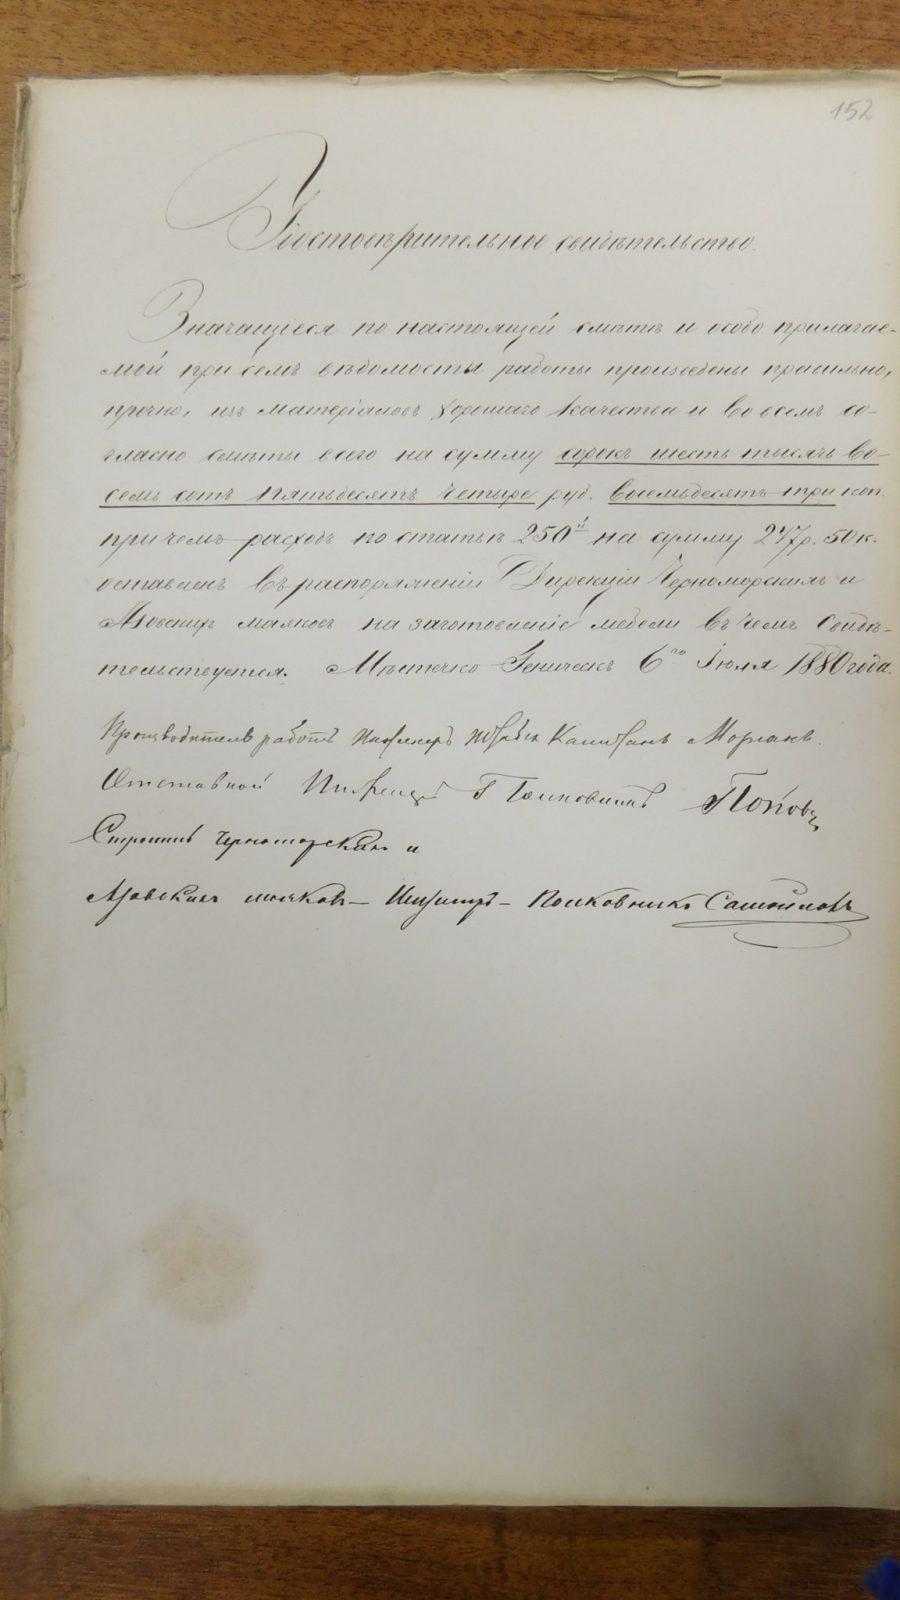 152
Удостоверительное свидѣтельство.
Значащіеся по настоящей смѣтѣ и особо прилагае-
мой при семъ вѣдомости работы произведены правильно,
прочно, изъ матеріаловъ хорошаго качества и во всемъ со-
гласно смѣты всего на сумму сорокъ шесть тысячъ во-
семь сотъ пятьдесятъ четыре руб. восемьдесятъ три коп.
причемъ расходъ по статьѣ 250й на сумму 247р. 50к.
оставленъ въ распоряженіи Дирекціи Черноморскихъ и
Азовскихъ маяковъ на заготовленіе мебели въ чемъ свидѣ-
тельствуется. Мѣстечко Геническъ 6го Іюля 1880 года.
Производитель работъ Инженеръ Штабсъ Капитанъ
Отставной Инженеръ Полковникъ Поповъ
Строитель Черноморскихъ и
Азовскихъ маяковъ – Инженеръ – Полковникъ